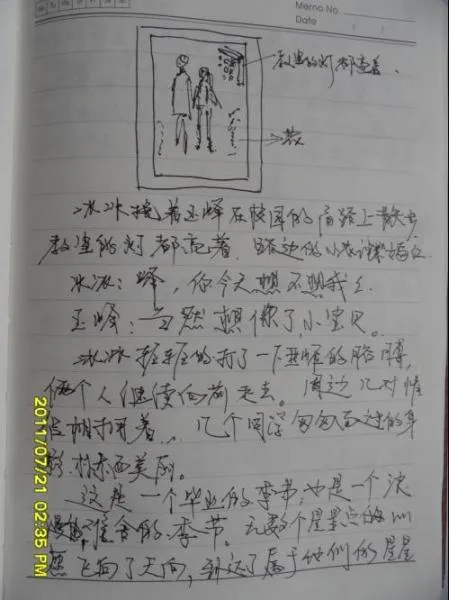 Memo No.
Date / /
教室的灯都亮着.
花
冰冰挽着玉峰在校园的 路上散步
教室的灯都亮着. 路边的小花
冰冰: 峰, 你今天想不想我?
玉峰: 当然想你了, 小宝贝。
冰冰轻轻的打了一下玉峰的胳膊,
俩个人继续向前走去。周边几对情
侣相拥着、 几个同学匆匆而过的身
影
这是一个毕业的季节, 也是一个浪
漫 的季节。无数个星点的
愿飞向了天向, 到达了属于他们的星星
2011/07/21 02:35 PM